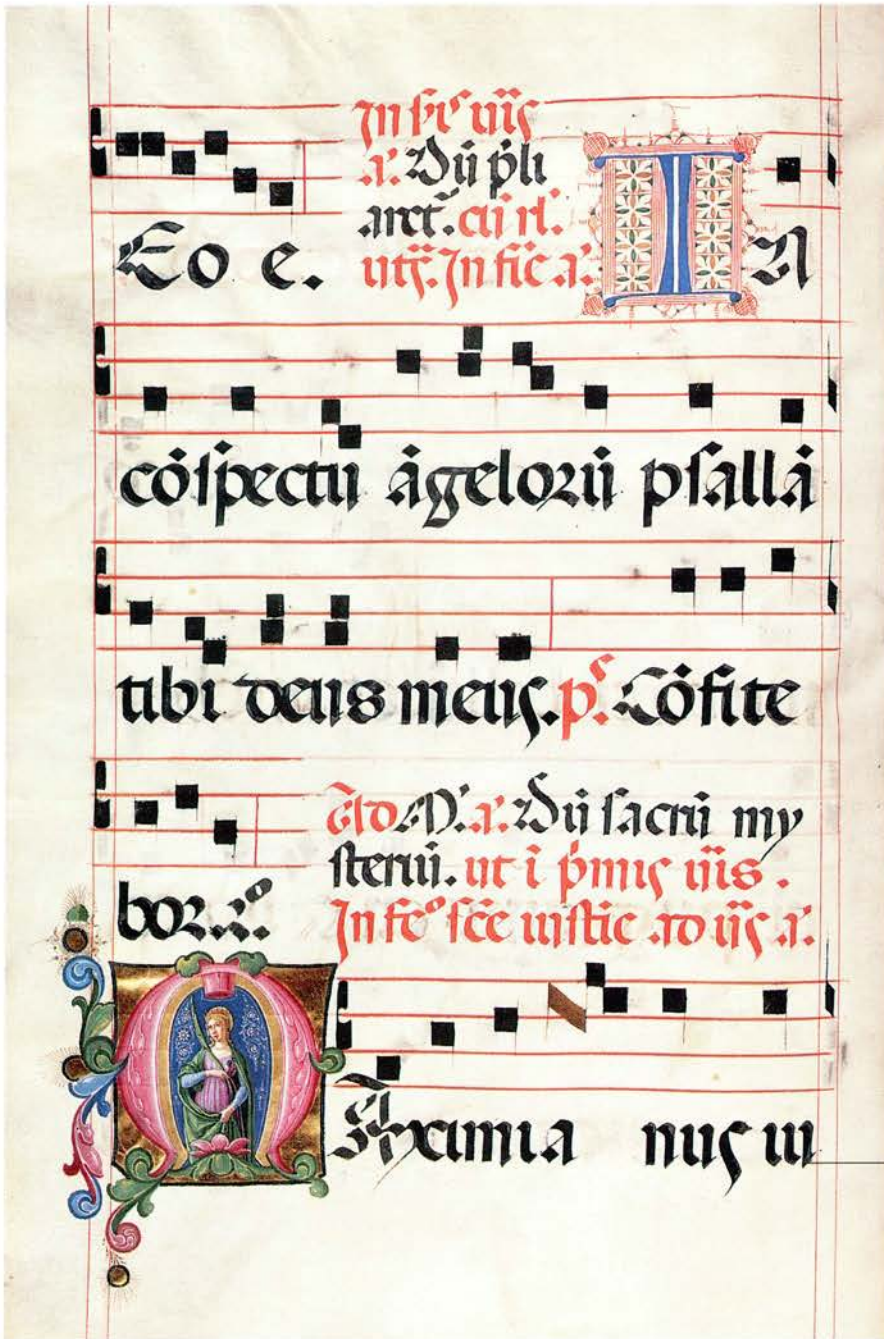 In scīs uīīs
a. Dū p̄li
aret̄. cū rl.
ut s̄. In fīc a.
Eo e.
IN
cōspectu āgeloꝝū psallā
tibi deus meus. p̄s. Cōfite
bor.
Ad M. a. Dū sacrū my
steriū. ut ī p̄mis uīīs.
In fe° scē iustīe ad uīīs a.
MAximia nus iu